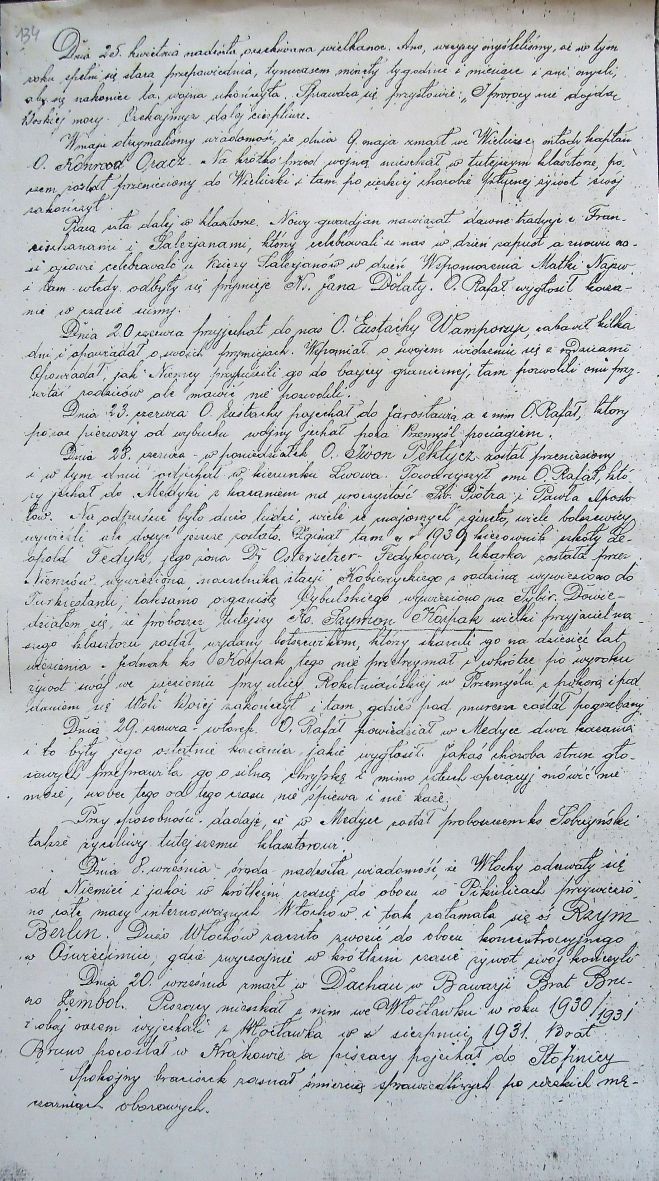 134
Dnia 25. kwietnia nadeszła oczekiwana wielkanoc. Ano, wszyscy myśleliśmy, że w tym
roku spełni się stara przepowiednia, tymczasem minęły tygodnie i miesiące i ani myśli,
aby się nakoniec ta wojna ukończyła. Sprawdza się przysłowie: "I prorocy nie dojdą
Boskiej mocy. Czekajmyż dalej cierpliwie.
W maju otrzymaliśmy wiadomość, że dnia 9. maja zmarł we Wieliczce młody kapłan
O. Konrad Oracz. Na krótko przed wojną mieszkał w tutejszym klasztorze, po-
czem został przeniesiony do Wieliczki i tam po ciężkiej chorobie żywot swój
zakończył.
Praca szła dalej w klasztorze. Nowy gwardjan nawiązał dawne tradycje z Fran-
ciszkanami i Salezjanami, który celebrowali u nas w dzień zapust a znowu na-
si ojcowie celebrowali u Księży Salezjanów w dzień Wspomożenia Matki Najśw.
i tam wtedy odbyły się prymicje Ks. Jana Dolaty. O. Rafał wygłosił kaza-
nie w czasie sumy.
Dnia 20 czerwca przyjechał do nas O. Eustachy Wamporzyc, zabawił kilka
dni i opowiadał o swoich prymicjach. Wspomniał o swojem widzeniu się z rodzicami
Opowiadał jak Niemcy przypuścili go do barjery granicznej, tam pozwolili mu przy-
witać rodziców ale mówić nie pozwolili.
Dnia 23. czerwca O. Eustachy pojechał do Jarosławia a z nim O. Rafał, który
po raz pierwszy od wybuchu wojny jechał poza Przemyśl pociągiem.
Dnia 28. czerwca - w poniedziałek O. Iwon Pektycz został przeniesiony
i w tym dniu odjechał w kierunku Lwowa. Towarzyszył mu O. Rafał, któ-
ry jechał do Medyki z kazaniem na uroczystość Św. Piotra i Pawła Aposto-
łów. Na odpuście było dużo ludzi, wiele ze znajomych zginęło, wiele bolszewicy
wywieźli ale dosyć jeszcze zostało. Zginął tam w r 1939 kierownik szkoły Le-
opold Fedyk, jego żona Dr Ostersetzer-Fedykowa, lekarka została przez
Niemców wywieziona, naczelnika stacji Kobierzyckiego z rodziną wywieziono do
Turkiestanu, taksamo organistę Cybulskiego wywieziono na Sybir. Dowie-
działem się, że proboszcz tutejszy Ks. Szymon Korpak wielki przyjaciel na-
szego klasztoru został wydany bolszewikom, który skazali go na dziesięć lat
więzienia - jednak ks Korpak tego nie przetrzymał i wkrótce po wyroku
żywot swój we więzieniu przy ulicy Rokitniańskiej w Przemyślu z pokorą i pod
daniem się Woli Bożej zakończył i tam gdzieś pod murem został pogrzebany
Dnia 29. czerwca - wtorek. O. Rafał powiedział w Medyce dwa kazania
i to były jego ostatnie kazania, jakie wygłosił. Jakaś choroba strun gło-
sowych przeprawiła go o silną chrypkę i mimo trzech operacyj mówić nie
może, wobec tego od tego czasu nie śpiewa i nie każe.
Przy sposobności dodaję, że w Medyce został proboszczem ks Sebzyński
także życzliwy tutejszemu klasztorowi.
Dnia 8. września - środa nadeszła wiadomość że Włochy oderwały się
od Niemiec i jakoż w krótkim czasie do obozu w Pikulicach przywiezio-
no całe masy internowanych Włochów i tak załamała się oś Rzym
Berlin. Dużo Włochów zaczęto zwozić do obozu koncentracyjnego
w Oświęcimiu, gdzie zwyczajnie w krótkim czasie żywot swój kończyli
Dnia 20. września zmarł w Dachau w Bawarji Brat Bru-
no Zembol. Piszący mieszkał z nim we Włocławku w roku 1930/1931
i obaj razem wyjechali z Włocławka w sierpniu 1931. Brat
Bruno pozostał w Krakowie a piszący pojechał do Stopnicy
Spokojny braciszek zasnął śmiercią sprawiedliwych po ciężkich mę-
czarniach obozowych.